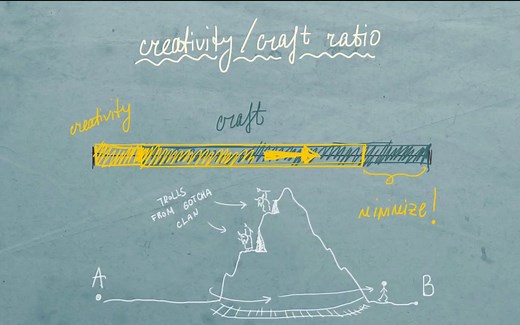 creativity/craft ratio
creativity
craft
minimize!
TROLLS
FROM GOTCHA
CLAN
A
B